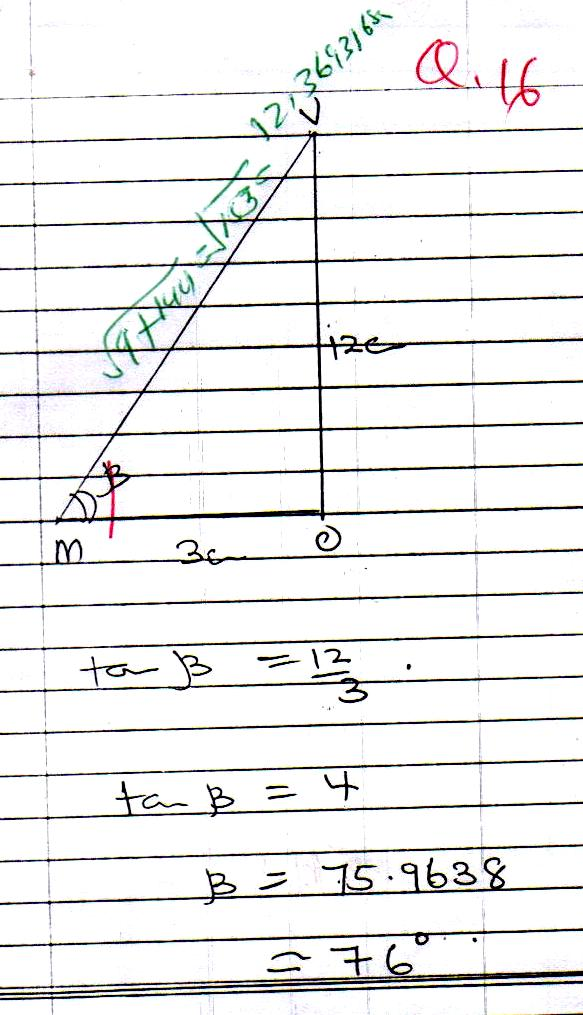 Q.16
V
√9+144 = √153 = 12.3693169
12c
β
M 3c O
tan β = 12/3 .
tan β = 4
β = 75.9638
= 76°